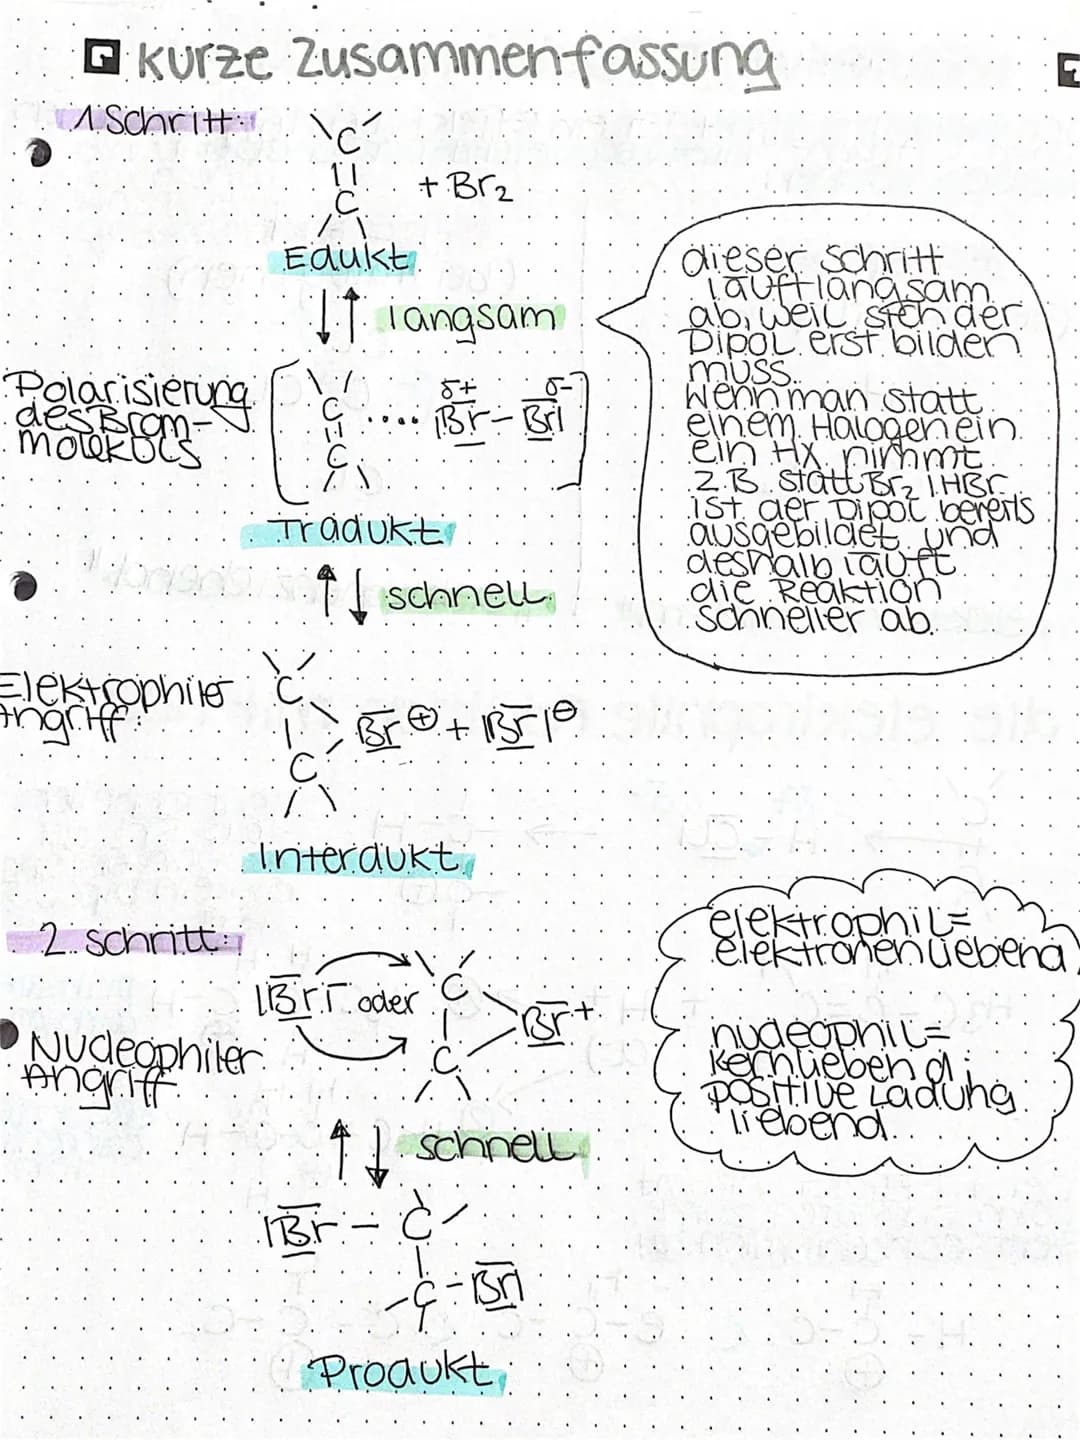 kurze Zusammenfassung
1. Schritt:
\ C /
||
C
/ \
+ Br₂
Edukt
langsam
dieser Schritt
läuft langsam
ab, weil sich der
Dipol erst bilden
muss.
Wenn man statt
einem Halogen ein
ein HX nimmt
z.B. statt Br₂, HBr
ist der Dipol bereits
ausgebildet und
deshalb läuft
die Reaktion
schneller ab.
Polarisierung
des Brom-
moleküls
\ /
C
||
C
/ \
.... δ+ δ-
|Br – Br|
Tradukt
schnell
Elektrophiler
Angriff:
\ /
C
|
C
/ \
Br⊕ + |Br|⊖
Interdukt
2. Schritt:
elektrophil =
elektronenliebend
nucleophil =
kernliebend,
positive Ladung
liebend
|Br|⁻ oder
\ /
C
|
C
/ \
Br+
Nucleophiler
Angriff
schnell
|Br – C /
|
– C – Br|
Produkt